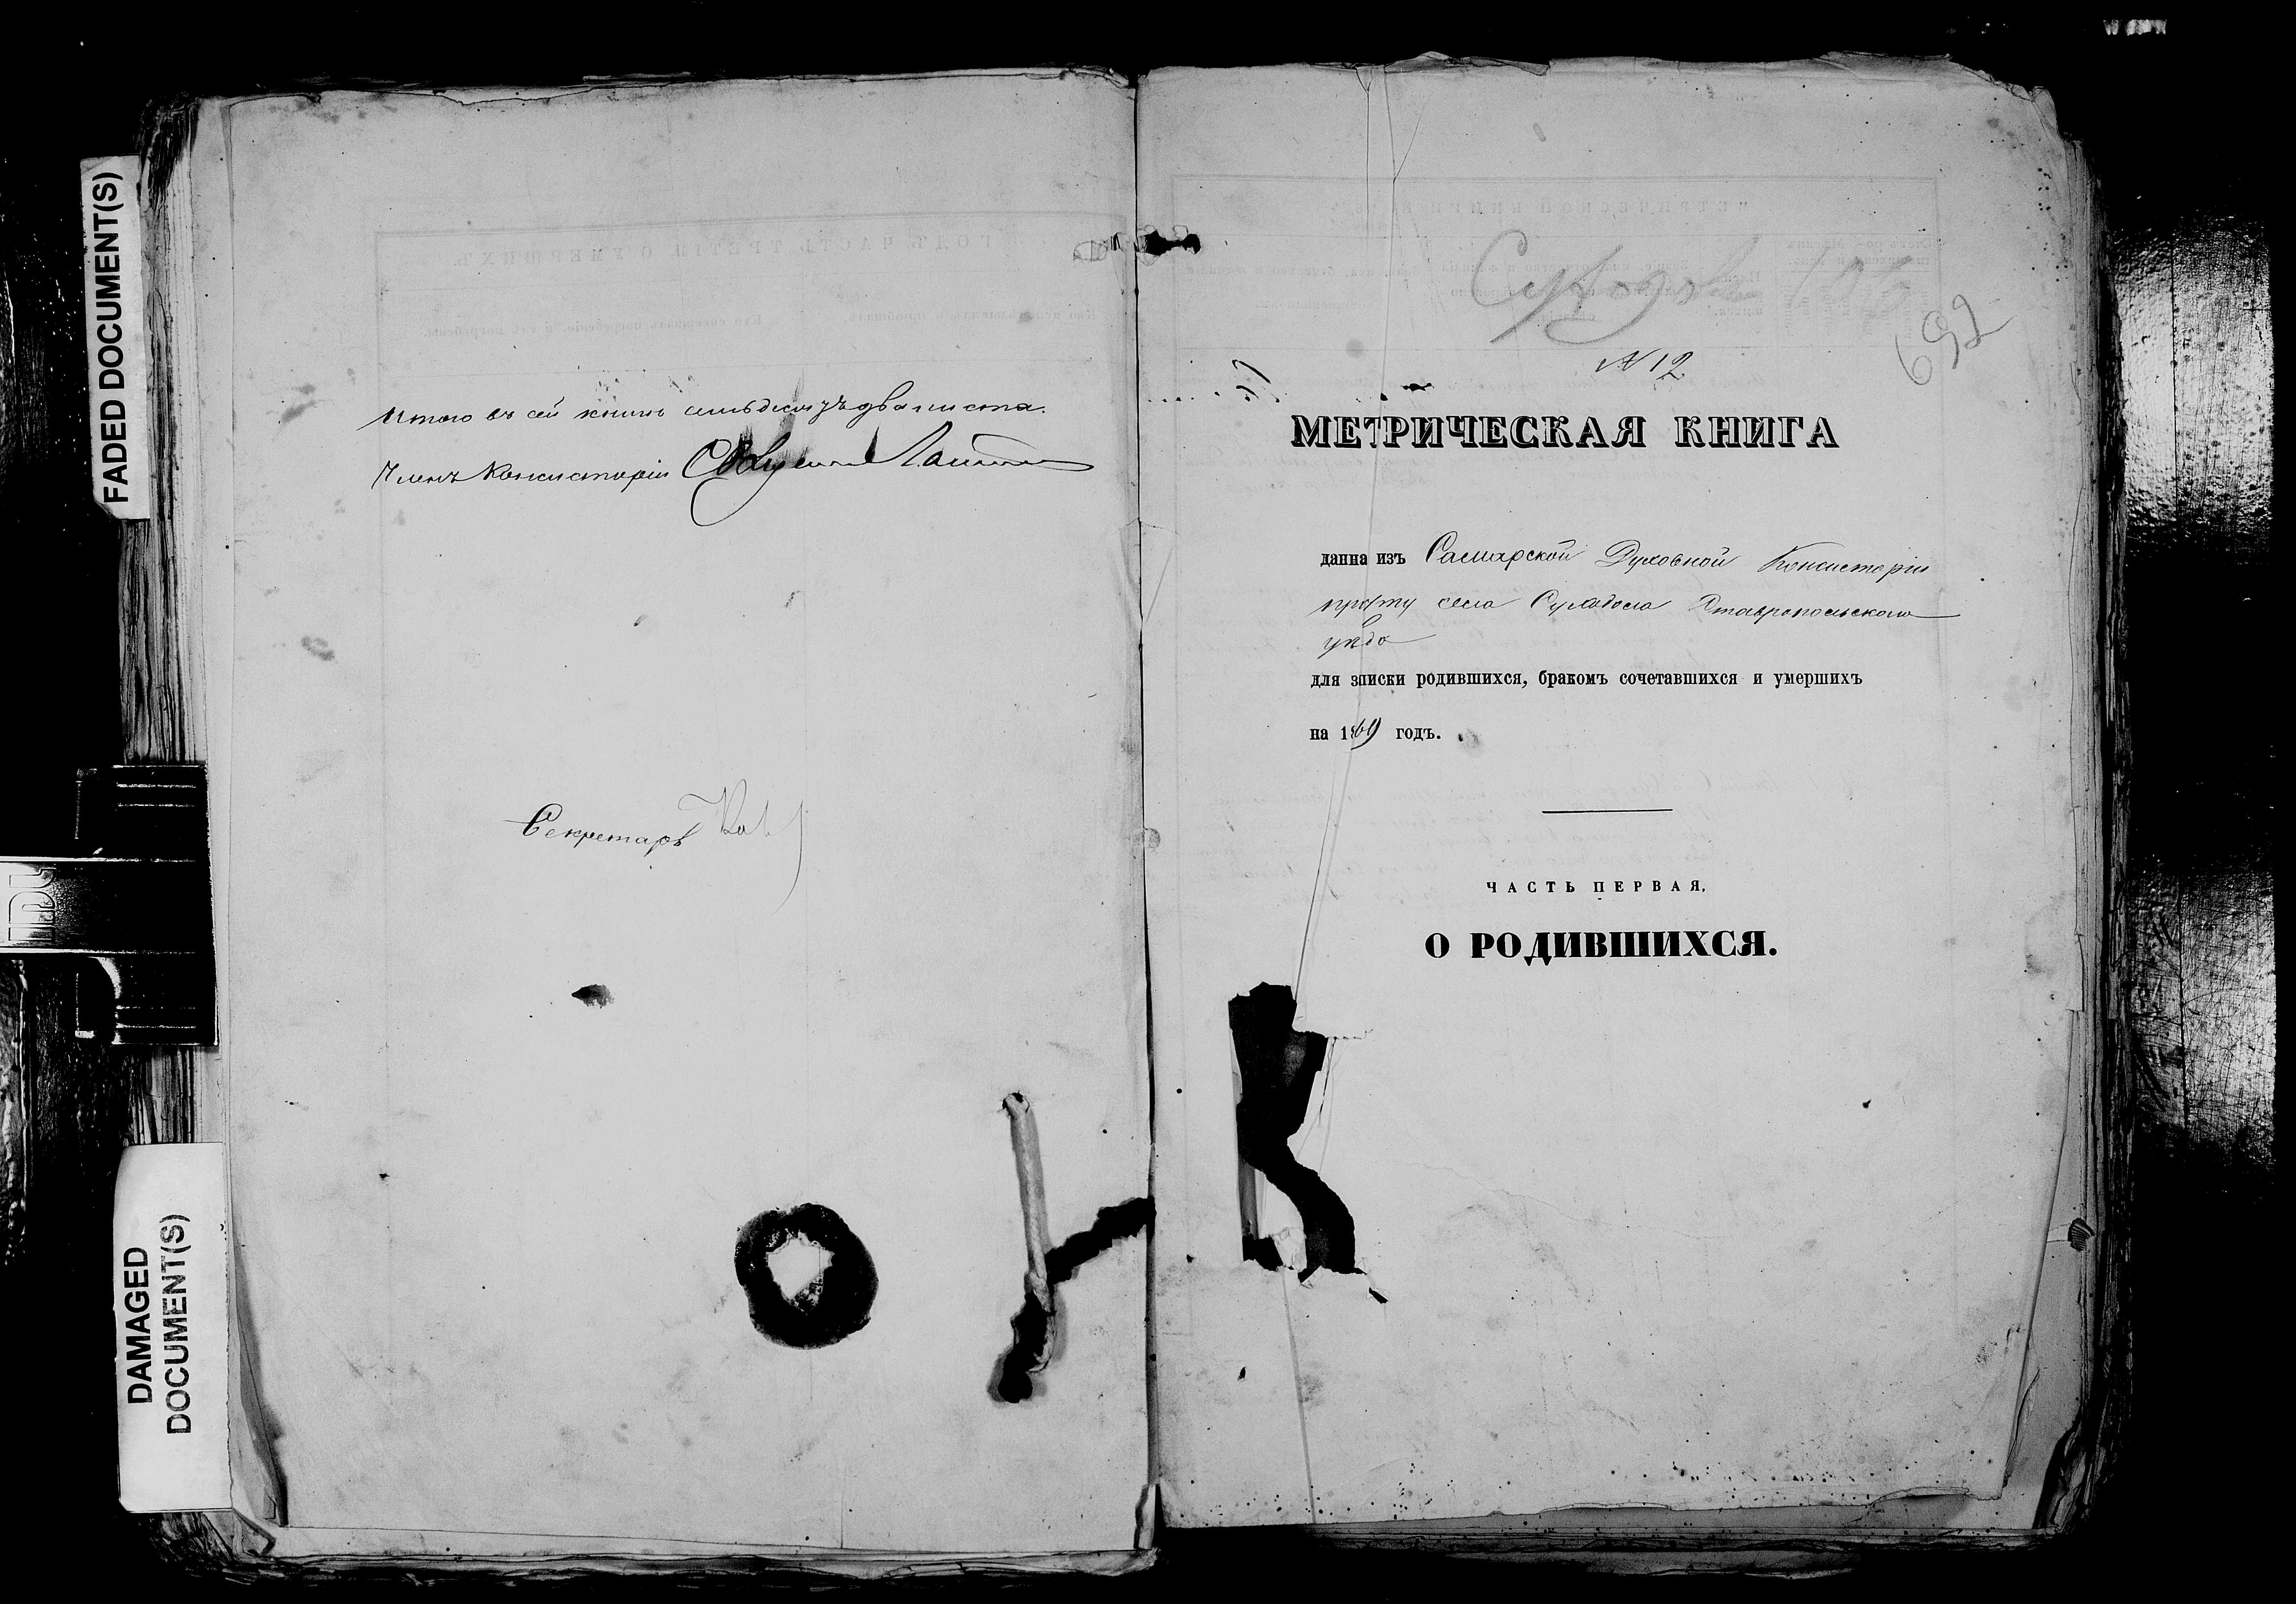 FADED DOCUMENT(S)
DAMAGED
DOCUMENT(S)
Итого въ сей книгѣ семьдесятъ два листа.
Членъ Консисторіи
Секретарь
Суходол 106
692
№ 12
МЕТРИЧЕСКАЯ КНИГА
данна изъ Самарской Духовной Консисторіи
причту села Суходола Ставропольскаго
уѣзда
для записки родившихся, бракомъ сочетавшихся и умершихъ
на 1869 годъ.
ЧАСТЬ ПЕРВАЯ,
О РОДИВШИХСЯ.